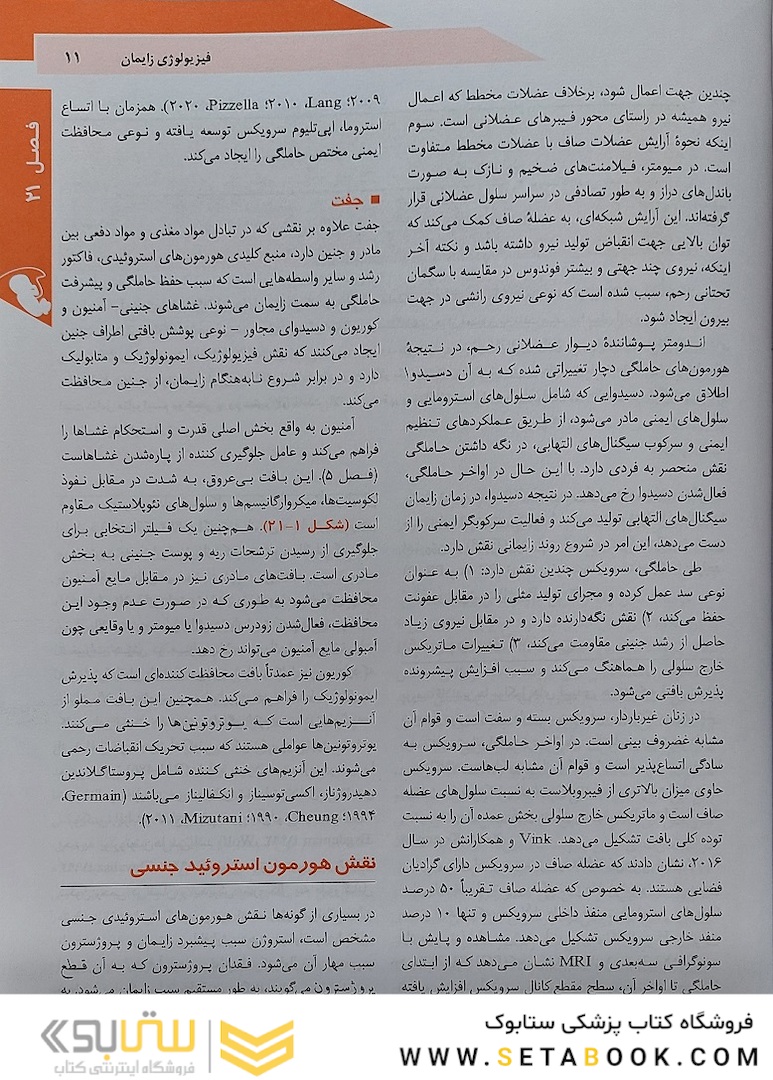 فیزیولوژی زایمان ۱۱
فصل ۲۱
چندین جهت اعمال شود، برخلاف عضلات مخطط که اعمال
نیرو همیشه در راستای محور فیبرهای عضلانی است. سوم
اینکه نحوهٔ آرایش عضلات صاف با عضلات مخطط متفاوت
است. در میومتر، فیلامنت‌های ضخیم و نازک به صورت
باندل‌های دراز و به طور تصادفی در سراسر سلول عضلانی قرار
گرفته‌اند. این آرایش شبکه‌ای، به عضلهٔ صاف کمک می‌کند که
توان بالایی جهت انقباض تولید نیرو داشته باشد و نکته آخر
اینکه، نیروی چند جهتی و بیشتر فوندوس در مقایسه با سگمان
تحتانی رحم، سبب شده است که نوعی نیروی رانشی در جهت
بیرون ایجاد شود.
اندومتر پوشانندهٔ دیوار عضلانی رحم، در نتیجهٔ
هورمون‌های حاملگی دچار تغییراتی شده که به آن دسیدوا
اطلاق می‌شود. دسیدوایی که شامل سلول‌های استرومایی و
سلول‌های ایمنی مادر می‌شود، از طریق عملکردهای تنظیم
ایمنی و سرکوب سیگنال‌های التهابی، در نگه داشتن حاملگی
نقش منحصر به فردی دارد. با این حال در اواخر حاملگی،
فعال‌شدن دسیدوا رخ می‌دهد. در نتیجه دسیدوا، در زمان زایمان
سیگنال‌های التهابی تولید می‌کند و فعالیت سرکوبگر ایمنی را از
دست می‌دهد، این امر در شروع روند زایمانی نقش دارد.
طی حاملگی، سرویکس چندین نقش دارد: ۱) به عنوان
نوعی سد عمل کرده و مجرای تولید مثلی را در مقابل عفونت
حفظ می‌کند، ۲) نقش نگه‌دارنده دارد و در مقابل نیروی زیاد
حاصل از رشد جنینی مقاومت می‌کند، ۳) تغییرات ماتریکس
خارج سلولی را هماهنگ می‌کند و سبب افزایش پیشرونده
پذیرش بافتی می‌شود.
در زنان غیرباردار، سرویکس بسته و سفت است و قوام آن
مشابه غضروف بینی است. در اواخر حاملگی، سرویکس به
سادگی اتساع‌پذیر است و قوام آن مشابه لب‌هاست. سرویکس
حاوی میزان بالاتری از فیبروبلاست به نسبت سلول‌های عضله
صاف است و ماتریکس خارج سلولی بخش عمده آن را به نسبت
توده کلی بافت تشکیل می‌دهد. Vink و همکارانش در سال
۲۰۱۶، نشان دادند که عضله صاف در سرویکس دارای گرادیان
فضایی هستند. به خصوص که عضله صاف تقریباً ۵۰ درصد
سلول‌های استرومایی منفذ داخلی سرویکس و تنها ۱۰ درصد
منفذ خارجی سرویکس تشکیل می‌دهد. مشاهده و پایش با
سونوگرافی سه‌بعدی و MRI نشان می‌دهد که از ابتدای
حاملگی تا اواخر آن، سطح مقطع کانال سرویکس افزایش یافته
۲۰۰۹؛ Lang، ۲۰۱۰؛ Pizzella، ۲۰۲۰). همزمان با اتساع
استروما، اپی‌تلیوم سرویکس توسعه یافته و نوعی محافظت
ایمنی مختص حاملگی را ایجاد می‌کند.
■ جفت
جفت علاوه بر نقشی که در تبادل مواد مغذی و مواد دفعی بین
مادر و جنین دارد، منبع کلیدی هورمون‌های استروئیدی، فاکتور
رشد و سایر واسطه‌هایی است که سبب حفظ حاملگی و پیشرفت
حاملگی به سمت زایمان می‌شوند. غشاهای جنینی- آمنیون و
کوریون و دسیدوای مجاور - نوعی پوشش بافتی اطراف جنین
ایجاد می‌کنند که نقش فیزیولوژیک، ایمونولوژیک و متابولیک
دارد و در برابر شروع نابه‌هنگام زایمان، از جنین محافظت
می‌کند.
آمنیون به واقع بخش اصلی قدرت و استحکام غشاها را
فراهم می‌کند و عامل جلوگیری کننده از پاره‌شدن غشاهاست
(فصل ۵). این بافت بی‌عروق، به شدت در مقابل نفوذ
لکوسیت‌ها، میکروارگانیسم‌ها و سلول‌های نئوپلاستیک مقاوم
است (شکل ۱-۲۱). هم‌چنین یک فیلتر انتخابی برای
جلوگیری از رسیدن ترشحات ریه و پوست جنینی به بخش
مادری است. بافت‌های مادری نیز در مقابل مایع آمنیون
محافظت می‌شود به طوری که در صورت عدم وجود این
محافظت، فعال‌شدن زودرس دسیدوا یا میومتر و یا وقایعی چون
آمبولی مایع آمنیون می‌تواند رخ دهد.
کوریون نیز عمدتاً بافت محافظت کننده‌ای است که پذیرش
ایمونولوژیک را فراهم می‌کند. همچنین این بافت مملو از
آنزیم‌هایی است که یوتروتونین‌ها را خنثی می‌کنند.
یوتروتونین‌ها عواملی هستند که سبب تحریک انقباضات رحمی
می‌شوند. این آنزیم‌های خنثی کننده شامل پروستاگلاندین
دهیدروژناز، اکسی‌توسیناز و انکفالیناز می‌باشند (Germain،
۱۹۹۴؛ Cheung، ۱۹۹۰؛ Mizutani، ۲۰۱۱).
نقش هورمون استروئید جنسی
در بسیاری از گونه‌ها نقش هورمون‌های استروئیدی جنسی
مشخص است، استروژن سبب پیشبرد زایمان و پروژسترون
سبب مهار آن می‌شود. فقدان پروژسترون که به آن قطع
پروژسترون می‌گویند، به طور مستقیم سبب زایمان می‌شود. به
فروشگاه کتاب پزشکی ستابوک
WWW.SETABOOK.COM
ستابوک
فروشگاه اینترنتی کتاب